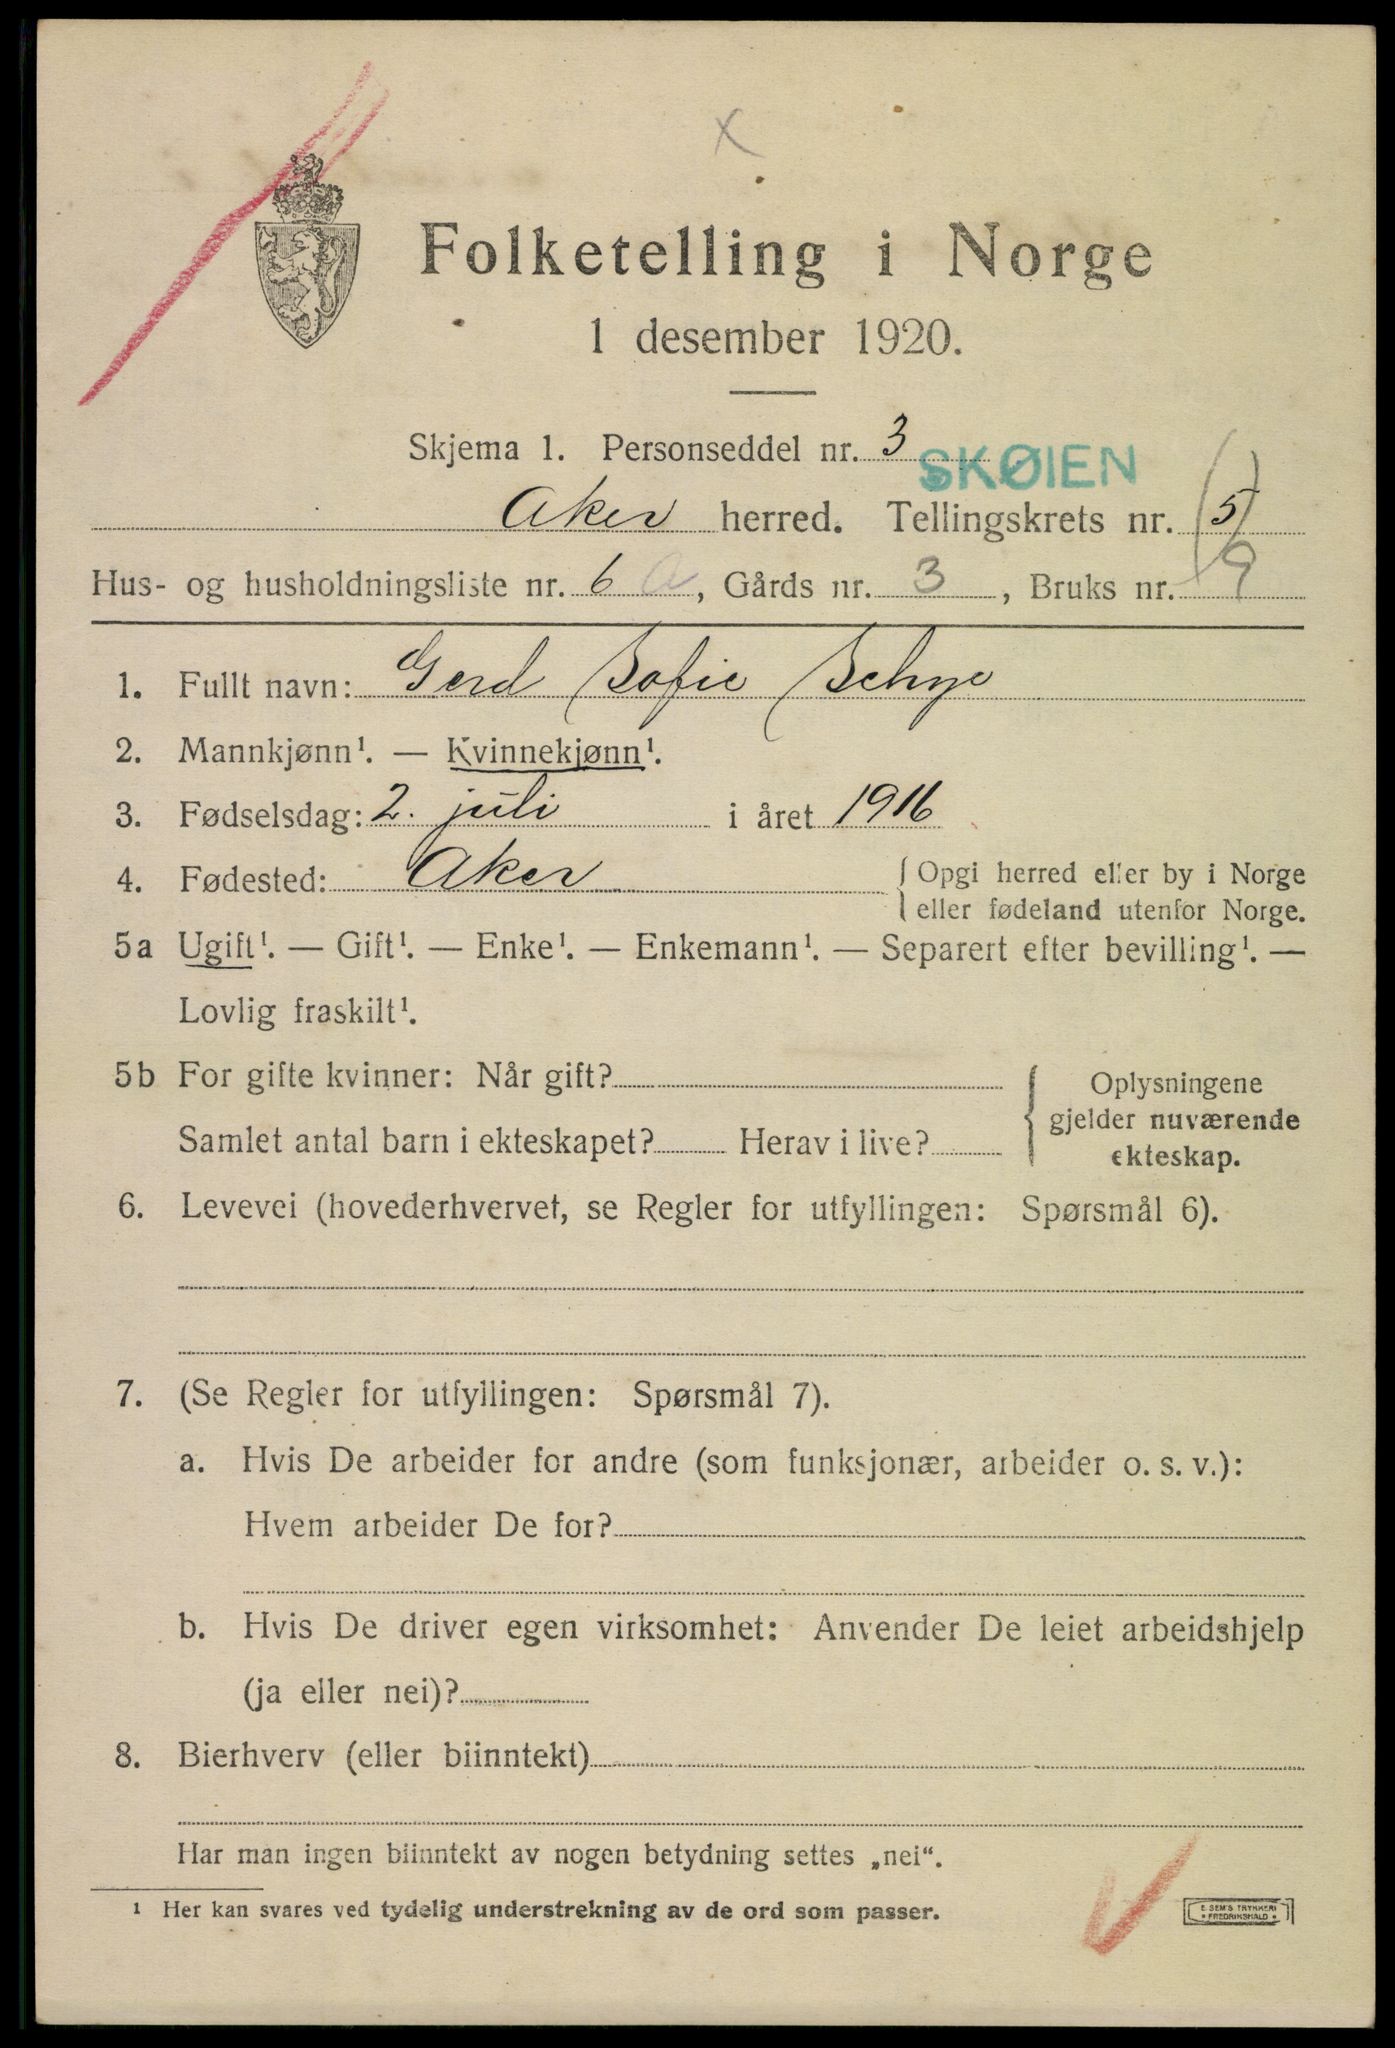 x
Folketelling i Norge
1 desember 1920.
Skjema 1. Personseddel nr. 3
SKØIEN
Aker herred. Tellingskrets nr. (5)
Hus- og husholdningsliste nr. 6 a, Gårds nr. 3, Bruks nr. 9
1. Fullt navn: Gerd Sofie Schye
2. Mannkjønn¹. — Kvinnekjønn¹.
3. Fødselsdag: 2. juli i året 1916
4. Fødested: Aker { Opgi herred eller by i Norge
eller fødeland utenfor Norge.
5a Ugift¹. — Gift¹. — Enke¹. — Enkemann¹. — Separert efter bevilling¹. —
Lovlig fraskilt¹.
5b For gifte kvinner: Når gift?
Samlet antal barn i ekteskapet? Herav i live?
Oplysningene
gjelder nuværende
ekteskap.
6. Levevei (hovederhvervet, se Regler for utfyllingen: Spørsmål 6).
7. (Se Regler for utfyllingen: Spørsmål 7).
a. Hvis De arbeider for andre (som funksjonær, arbeider o. s. v.):
Hvem arbeider De for?
b. Hvis De driver egen virksomhet: Anvender De leiet arbeidshjelp
(ja eller nei)?
8. Bierhverv (eller biinntekt)
Har man ingen biinntekt av nogen betydning settes „nei“.
¹ Her kan svares ved tydelig understrekning av de ord som passer.
E. SEM'S TRYKKERI
• FREDRIKSHALD •